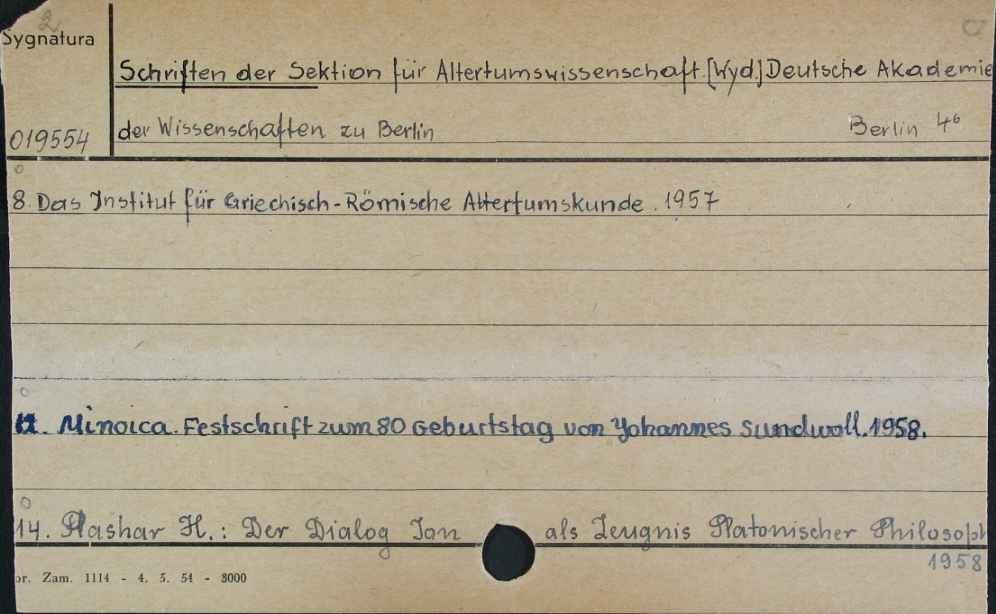 2
Sygnatura
Schriften der Sektion für Altertumswissenschaft [Wyd.] Deutsche Akademie
019554 der Wissenschaften zu Berlin Berlin 4°
8. Das Institut für Griechisch-Römische Altertumskunde. 1957
12. Minoica. Festschrift zum 80 Geburtstag von Yohannes Sundwoll. 1958.
14. Flashar H.: Der Dialog Ion als Zeugnis Platonischer Philosoph
1958
or. Zam. 1114 - 4. 5. 54 - 8000